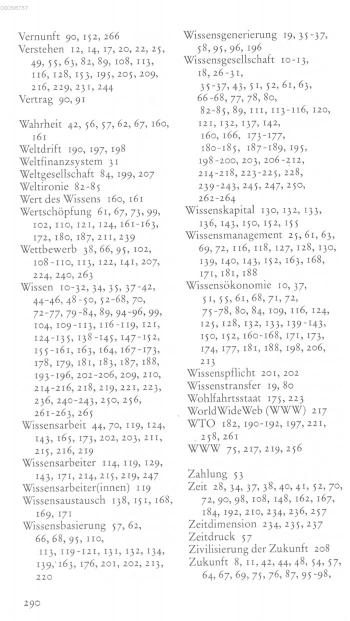 00098757
Vernunft 90, 152, 266
Verstehen 12, 14, 17, 20, 22, 25,
49, 55, 63, 82, 89, 108, 113,
116, 128, 153, 195, 205, 209,
216, 229, 231, 244
Vertrag 90, 91
Wahrheit 42, 56, 57, 62, 67, 160,
161
Weltdrift 190, 197, 198
Weltfinanzsystem 31
Weltgesellschaft 84, 199, 207
Weltironie 82-85
Wert des Wissens 160, 161
Wertschöpfung 61, 67, 73, 99,
102, 110, 121, 124, 161-163,
172, 180, 187, 211, 239
Wettbewerb 38, 66, 95, 102,
108-110, 113, 122, 141, 207,
224, 240, 263
Wissen 10-32, 34, 35, 37-42,
44-46, 48-50, 52-68, 70,
72-77, 79-84, 89, 94-96, 99,
104, 109-113, 116-119, 121,
124-135, 138-145, 147-152,
155-161, 163, 164, 167-173,
178, 179, 181, 183, 187, 188,
193-196, 202-206, 209, 210,
214-216, 218, 219, 221, 223,
236, 240-243, 250, 256,
261-263, 265
Wissensarbeit 44, 70, 119, 124,
143, 165, 173, 202, 203, 211,
215, 216, 219
Wissensarbeiter 114, 119, 129,
143, 171, 214, 215, 219, 247
Wissensarbeiter(innen) 119
Wissensaustausch 138, 151, 168,
169, 171
Wissensbasierung 57, 62,
66, 68, 95, 110,
113, 119-121, 131, 132, 134,
139, 163, 176, 201, 202, 213,
220
Wissensgenerierung 19, 35-37,
58, 95, 96, 196
Wissensgesellschaft 10-13,
18, 26-31,
35-37, 43, 51, 52, 61, 63,
66-68, 77, 78, 80,
82-85, 89, 111, 113-116, 120,
121, 132, 137, 142,
160, 166, 173-177,
180-185, 187-189, 195,
198-200, 203, 206-212,
214-218, 223-225, 228,
239-243, 245, 247, 250,
262-264
Wissenskapital 130, 132, 133,
136, 143, 150, 152, 155
Wissensmanagement 25, 61, 63,
69, 72, 116, 118, 127, 128, 130,
139, 140, 143, 152, 163, 168,
171, 181, 188
Wissensökonomie 10, 37,
51, 55, 61, 68, 71, 72,
75-78, 80, 84, 109, 116, 124,
125, 128, 132, 133, 139-143,
150, 152, 160-168, 171, 173,
174, 177, 181, 188, 198, 206,
213
Wissenspflicht 201, 202
Wissenstransfer 19, 80
Wohlfahrtsstaat 175, 223
WorldWideWeb (WWW) 217
WTO 182, 190-192, 197, 221,
258, 261
WWW 75, 217, 219, 256
Zahlung 53
Zeit 28, 34, 37, 38, 40, 41, 52, 70,
72, 90, 98, 108, 148, 162, 167,
184, 192, 210, 234, 236, 257
Zeitdimension 234, 235, 237
Zeitdruck 57
Zivilisierung der Zukunft 208
Zukunft 8, 11, 42, 44, 48, 54, 57,
64, 67, 69, 75, 76, 87, 95-98,
290